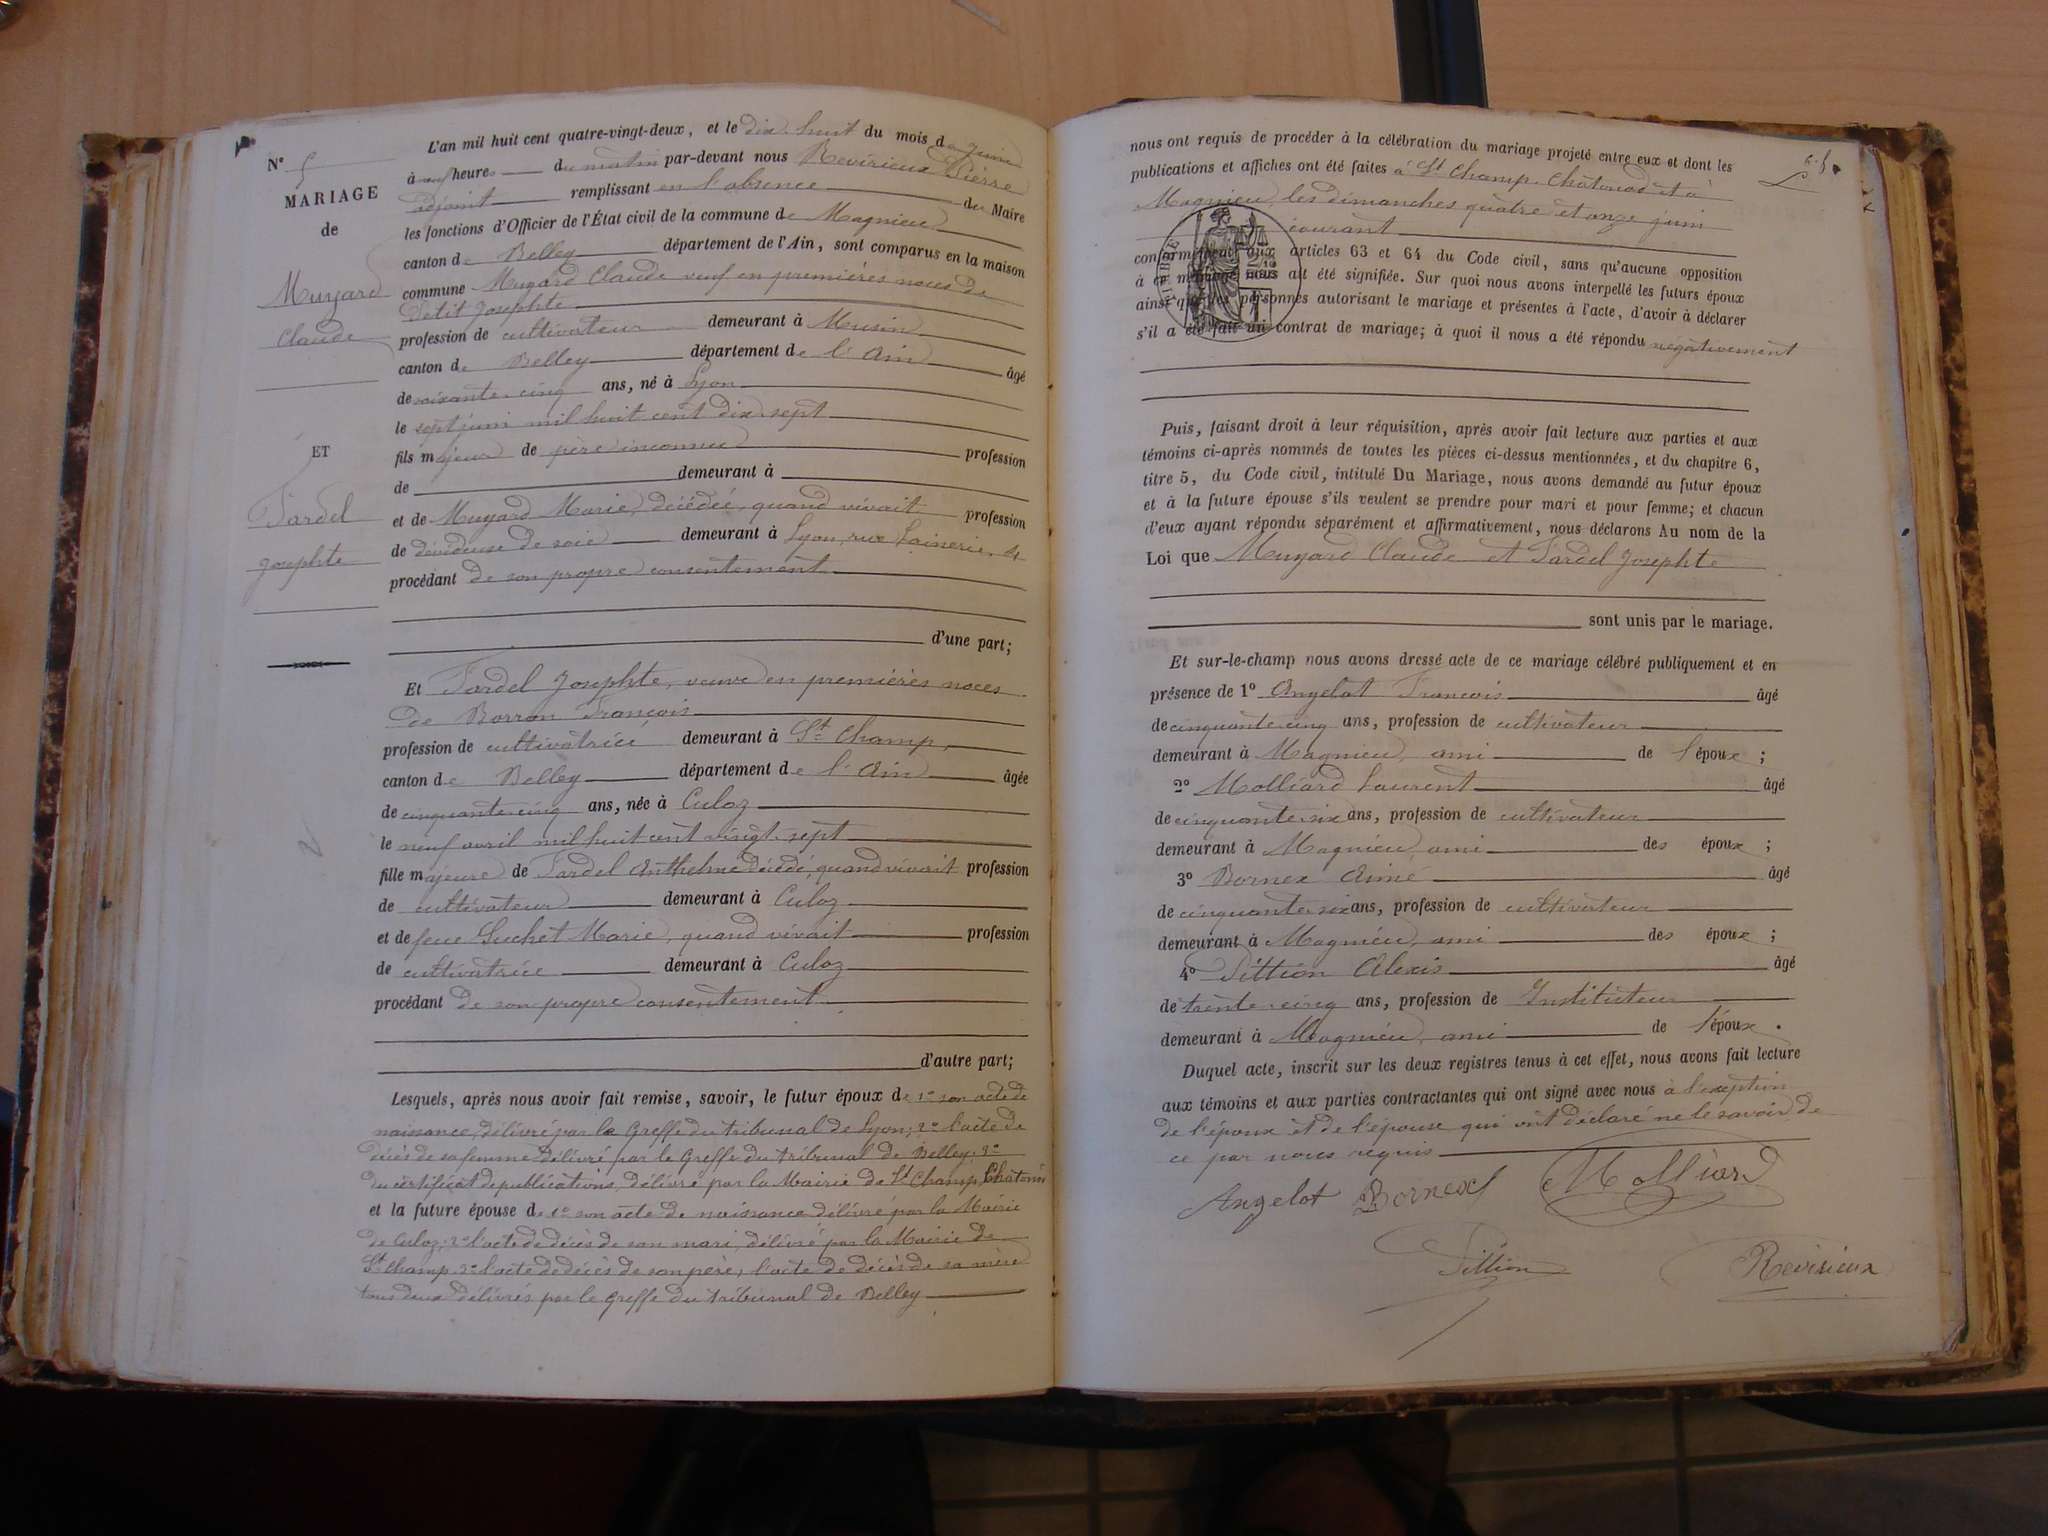 N° 5
MARIAGE
de
Muyard
Claude
ET
Fardel
Josephte
L'an mil huit cent quatre-vingt-deux, et le dix-huit du mois de juin
à neuf heures du matin par-devant nous Revirieux Pierre
adjoint remplissant en l'absence du Maire
les fonctions d'Officier de l'État civil de la commune de Magnieu
canton de Belley département de l'Ain, sont comparus en la maison
commune Muyard Claude veuf en premières noces de
Petit Josephte
profession de cultivateur demeurant à Musin
canton de Belley département de l'Ain âgé
de soixante-cinq ans, né à Lyon
le sept juin mil huit cent dix-sept
fils majeur de père inconnu profession
de demeurant à
et de Muyard Marie, décédée, quand vivait profession
de dévideuse de soie demeurant à Lyon, rue Lainerie, 4
procédant de son propre consentement
d'une part;
Et Fardel Josephte, veuve en premières noces
de Borron François
profession de cultivatrice demeurant à St Champ,
canton de Belley département de l'Ain âgée
de cinquante-cinq ans, née à Culoz
le neuf avril mil huit cent vingt-sept
fille majeure de Fardel Anthelme décédé, quand vivait profession
de cultivateur demeurant à Culoz
et de feue Guchet Marie, quand vivait profession
de cultivatrice demeurant à Culoz
procédant de son propre consentement
d'autre part;
Lesquels, après nous avoir fait remise, savoir, le futur époux de 1° son acte de
naissance, délivré par le Greffe du tribunal de Lyon; 2° l'acte de
décès de sa femme délivré par le Greffe du tribunal de Belley; 3°
du certificat de publications, délivré par la Mairie de St Champ, Chatonod
et la future épouse de 1° son acte de naissance délivré par la Mairie
de Culoz; 2° l'acte de décès de son mari, délivré par la Mairie de
St Champ. 3° l'acte de décès de son père, l'acte de décès de sa mère
tous deux délivrés par le Greffe du tribunal de Belley
nous ont requis de procéder à la célébration du mariage projeté entre eux et dont les
publications et affiches ont été faites à St Champ-Chatonod et à
Magnieu, les dimanches quatre et onze juin
courant
conformément aux articles 63 et 64 du Code civil, sans qu'aucune opposition
à ce mariage nous ait été signifiée. Sur quoi nous avons interpellé les futurs époux
ainsi que les personnes autorisant le mariage et présentes à l'acte, d'avoir à déclarer
s'il a été fait un contrat de mariage; à quoi il nous a été répondu négativement
Puis, faisant droit à leur réquisition, après avoir fait lecture aux parties et aux
témoins ci-après nommés de toutes les pièces ci-dessus mentionnées, et du chapitre 6,
titre 5, du Code civil, intitulé Du Mariage, nous avons demandé au futur époux
et à la future épouse s'ils veulent se prendre pour mari et pour femme; et chacun
d'eux ayant répondu séparément et affirmativement, nous déclarons Au nom de la
Loi que Muyard Claude et Fardel Josephte
sont unis par le mariage.
Et sur-le-champ nous avons dressé acte de ce mariage célébré publiquement et en
présence de 1° Angelot François âgé
de cinquante-cinq ans, profession de cultivateur
demeurant à Magnieu, ami de l'époux;
2° Molliard Laurent âgé
de cinquante-six ans, profession de cultivateur
demeurant à Magnieu, ami des époux;
3° Bornex Aimé âgé
de cinquante-six ans, profession de cultivateur
demeurant à Magnieu, ami des époux;
4° Pittion Alexis âgé
de trente-cinq ans, profession de Instituteur
demeurant à Magnieu, ami de l'époux.
Duquel acte, inscrit sur les deux registres tenus à cet effet, nous avons fait lecture
aux témoins et aux parties contractantes qui ont signé avec nous à l'exception
de l'époux et de l'épouse qui ont déclaré ne le savoir de
ce par nous requis
Angelot Bornex Molliard
Pittion Revirieux